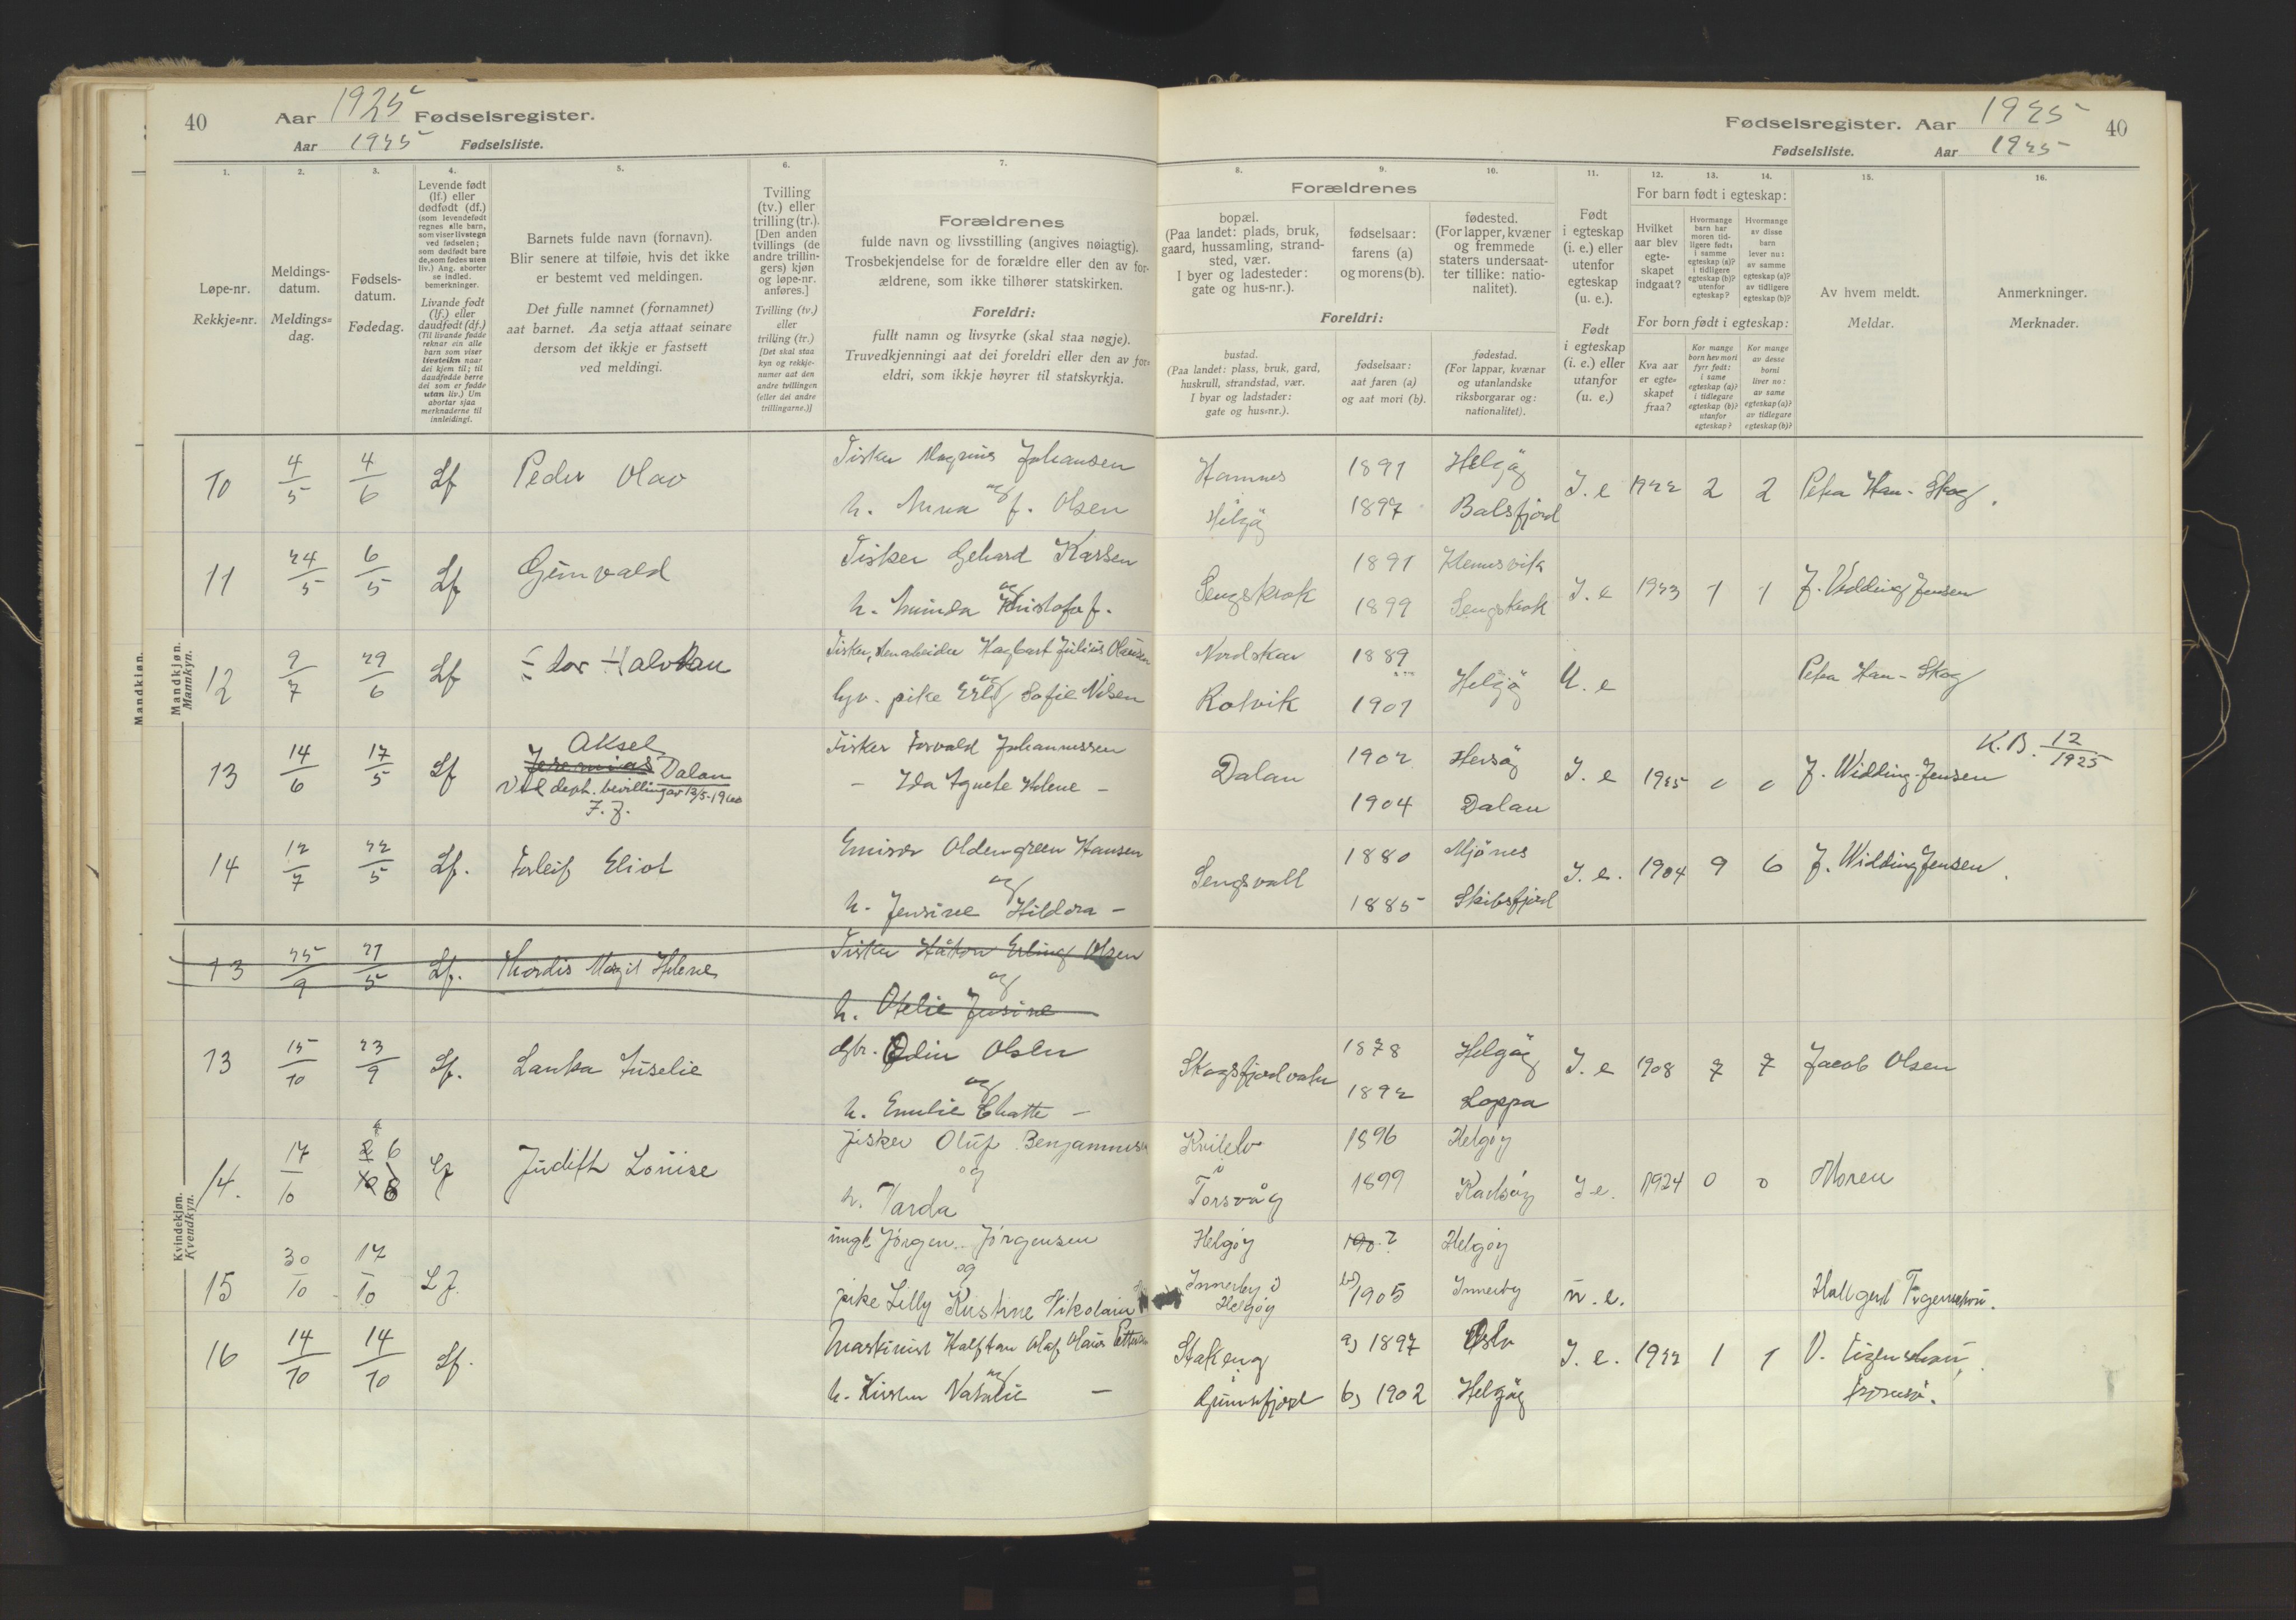 40 Aar 1925 Fødselsregister.
Aar 1925 Fødselsliste.
Fødselsregister. Aar 1925 40
Fødselsliste. Aar 1925
1. 2. 3. 4. 5. 6. 7. 8. 9. 10. 11. 12. 13. 14. 15. 16.
Løpe-nr.
Rekkje-nr.
Meldings-
datum.
Meldings-
dag.
Fødsels-
datum.
Fødedag.
Levende født
(lf.) eller
dødfødt (df.)
(som levendefødt
regnes alle barn,
som viser livstegn
ved fødselen;
som dødfødt bare
de, som fødes uten
liv.) Ang. aborter
se indled.
bemerkninger.
Livande født
(lf.) eller
daudfødt (df.)
(Til livande fødde
reknar ein alle
barn som viser
livsteikn naar
dei kjem til; til
daudfødde berre
dei som er fødde
utan liv.) Um
abortar sjaa
merknaderne til
innleidingi.
Barnets fulde navn (fornavn).
Blir senere at tilføie, hvis det ikke
er bestemt ved meldingen.
Det fulle namnet (fornamnet)
aat barnet. Aa setja attaat seinare
dersom det ikkje er fastsett
ved meldingi.
Tvilling
(tv.) eller
trilling (tr.).
[Den anden
tvillings (de
andre trillin-
gers) kjøn
og løpe-nr.
anføres.]
Tvilling (tv.)
eller
trilling (tr.)
[Det skal staa
kyn og rekkje-
numer aat den
andre tvillingen
(eller dei andre
trillingarne.)]
Forældrenes
fulde navn og livsstilling (angives nøiagtig).
Trosbekjendelse for de forældre eller den av for-
ældrene, som ikke tilhører statskirken.
Foreldri:
fullt namn og livsyrke (skal staa nøgje).
Truvedkjenningi aat dei foreldri eller den av for-
eldri, som ikkje høyrer til statskyrkja.
Forældrenes
bopæl.
(Paa landet: plads, bruk,
gaard, hussamling, strand-
sted, vær.
I byer og ladesteder:
gate og hus-nr.).
fødselsaar:
farens (a)
og morens (b).
fødested.
(For lapper, kvæner
og fremmede
staters undersaat-
ter tillike: natio-
nalitet).
Foreldri:
bustad.
(Paa landet: plass, bruk, gard,
huskrull, strandstad, vær.
I byar og ladstader:
gate og hus-nr.).
fødselsaar:
aat faren (a)
og aat mori (b).
fødestad.
(For lappar, kvænar
og utanlandske
riksborgarar og:
nationalitet).
Født
i egteskap
(i. e.) eller
utenfor
egteskap
(u. e.).
Født
i egteskap
(i. e.) eller
utanfor
(u. e.)
For barn født i egteskap:
Hvilket
aar blev
egte-
skapet
indgaat?
Hvormange
barn har
moren tid-
ligere født:
i samme
egteskap (a)?
i tidligere
egteskap (b)?
utenfor
egteskap?
Hvormange
av disse
barn
lever nu:
av samme
egteskap (a)?
av tidligere
egteskap (b)?
For born født i egteskap:
Kva aar
er egte-
skapet
fraa?
Kor mange
born hev mori
fyrr født:
i same
egteskap (a)?
i tidlegare
egteskap (b)?
utanfor
egteskap?
Kor mange
av desse
borni
liver no:
av same
egteskap (a)?
av tidlegare
egteskap (b)?
Av hvem meldt.
Meldar.
Anmerkninger.
Merknader.
Mandkiøn.
Mandkjøn.
Mannkyn.
10 4/5 4/6 Lf Peder Olav Fisker Magnus Johansen Hamnes 1891 Helgøy I. e 1922 2 2 Petra Han-Skog.
og
h. Anna f. Olsen Helgøy 1897 Balsfjord
11 24/5 6/5 Lf Gunvald Fisker Gehard Karlsen Lengskrok 1891 Klemusvik I. e 1923 1 1 J. Widding Jensen
og
h. 1899 Lengskrok
12 9/7 29/6 Lf Halvdan Fisker, Hagbart Julius Olausen Nordskar 1889 Helgøy U. e Petra Han-Skog
og
pike Sofie Nilsen Rotvik 1901
13 14/6 17/5 Lf Aksel Jeremias Dalan Fisker Torvald Johannessen Dalan 1902 Hersøy I. e 1925 0 0 J. Widding-Jensen K.B. 12/1925
Ved dept. bevilling av 12/5-1960
F. J.
- Ida Agnete Helene - 1904 Dalan
14 12/7 22/5 Lf. Torleif Eliot Emissær Oldengreen Hansen Lengsvall 1880 Mjønes I. e. 1904 9 6 J. Widding Jensen.
og
h. Jensine Hildora - 1885 Skibsfjord
Kvindekjøn.
Kvendkyn.
13 25/9 21/5 Lf. Thordis Margit Helene Fisker Håkon Erling Olsen
og
h. Otelie Jusine
13 15/10 23/9 Lf. Lanka Juselie Gbr. Odin Olsen Skogsfjordvatn 1878 Helgøy I. e 1908 7 7 Jacob Olsen
og
h. Emelie Chatte - 1892 Loppa
14. 17/10 26/10 6/8 Lf Judith Louise fisker Oluf Benjaminsen Kvitelv 1896 Helgøy I e. 1924 0 0 Moren
og i
h. Harda Torsvåg 1899 Karlsøy
15 30/10 17/10 Lf. ungk Jørgen Jørgensen Helgøy 190? Helgøy u. e.
og
pike Lilly Kristine Nikolaisen Innerby i Helgøy b) 1905 Innerby
16 14/10 14/10 Lf. Maskinist Halfdan Olaf Olaus Stakeng a) 1897 Oslo I. e. 1922 1 1
og i
h. Kirsten Natalie - Grunnfjord b) 1902 Helgøy